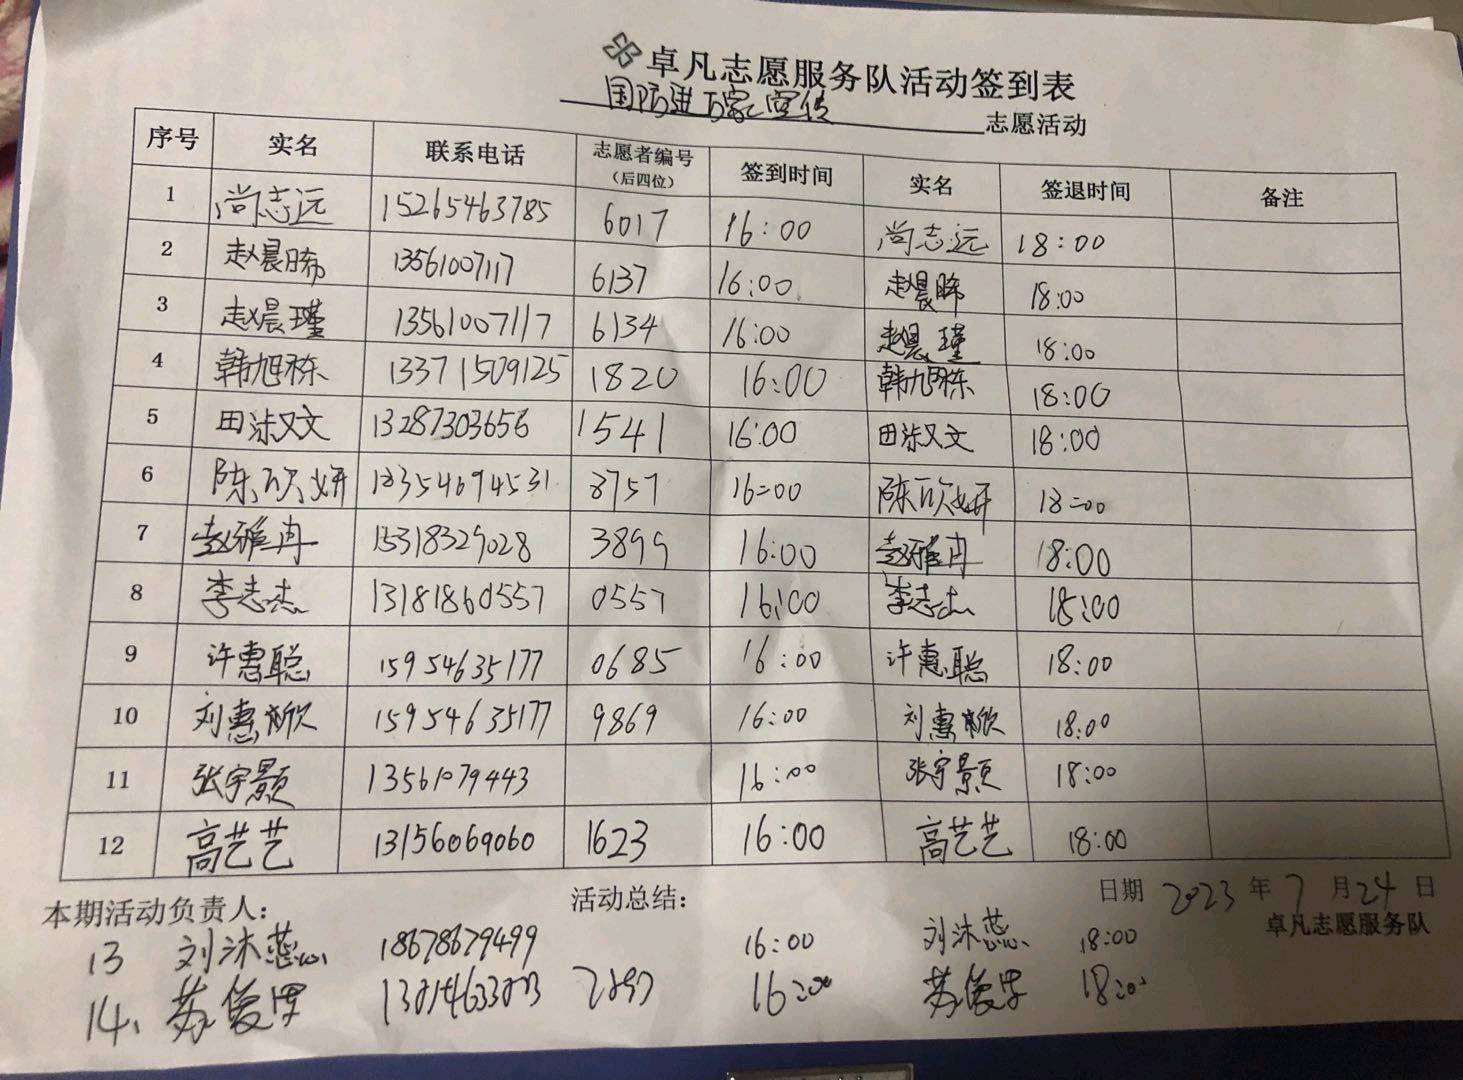 卓凡志愿服务队活动签到表
国防进万家宣传 志愿活动
序号 实名 联系电话 志愿者编号（后四位） 签到时间 实名 签退时间 备注
1 尚志远 15265463785 6017 16:00 尚志远 18:00
2 赵晨晞 13561007117 6137 16:00 赵晨晞 18:00
3 赵晨瑾 13561007117 6134 16:00 赵晨瑾 18:00
4 韩旭栋 13371509125 1820 16:00 韩旭栋 18:00
5 田沐又文 13287303656 1541 16:00 田沐又文 18:00
6 陈欣妍 13354694531 3757 16:00 陈欣妍 18:00
7 赵雅冉 15318329028 3899 16:00 赵雅冉 18:00
8 李志杰 13181860557 0557 16:00 李志杰 18:00
9 许惠聪 15954635177 0685 16:00 许惠聪 18:00
10 刘惠欣 15954635177 9869 16:00 刘惠欣 18:00
11 张宇景 13561079443 16:00 张宇景 18:00
12 高艺艺 13156069060 1623 16:00 高艺艺 18:00
本期活动负责人： 活动总结： 日期 2023 年 7 月 24 日
卓凡志愿服务队
13 刘沐蕊 18678679499 16:00 刘沐蕊 18:00
14、苏俊 16:00 苏俊 18:00